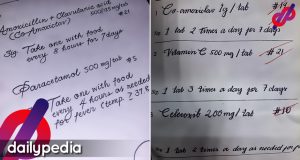 Amoxicillin + Clavulanic acid
(Co-Amoxiclav) 500/125mg/tab
#21
Sig. Take one with food
every 8 hours for 7 days
Paracetamol 500 mg/tab #5
Take one with food
every 4 hours as needed
for fever (temp. > 37.8
dailypedia
1. Co-amoxiclav 1g / tab #14
1 tab 2 times a day for 7 days
2. Vitamin C 500 mg / tab #21
1 tab 3 times a day for 7 days
Celecoxib 200 mg / tab #10
1 tab 2 times a day as needed for